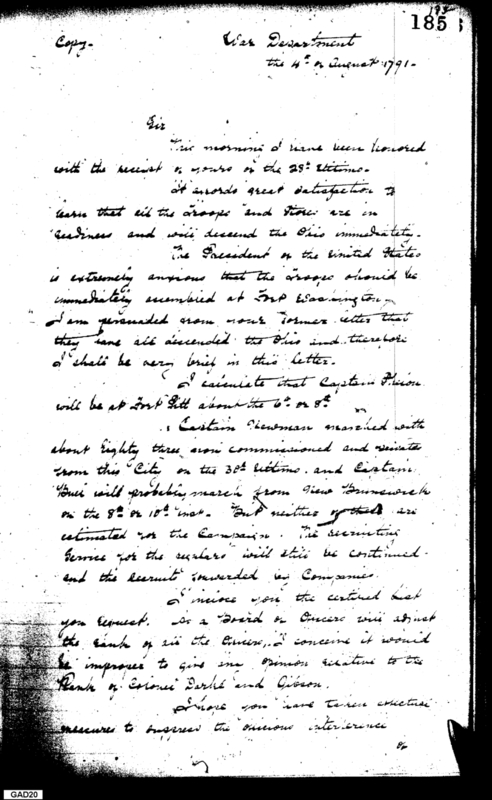 185
Copy.
War Department
the 4th of August 1791.
Sir
This morning I have been honored
with the receipt of yours of the 28th Ultimo.
It affords great satisfaction to
learn that all the Troops and Stores are in
readiness and will descend the Ohio immediately.
The President of the United States
is extremely anxious that the Troops should be
immediately assembled at Fort Washington.
I am persuaded from your former letter that
they have all descended the Ohio and therefore
I shall be very brief in this letter.
I calculate that Captain
will be at Fort Pitt about the 6th or 8th
Captain Newman marched with
about Eighty three non commissioned and privates
from this City on the 30th Ultimo. and Captain
will probably march from New Brunswick
on the 8th or 10th Inst. But neither of these are
estimated for the Campaign. The recruiting
Service for the regulars will still be continued
and the recruits forwarded by Companies.
I inclose you the certified list
you request. As a Board of Officers will adjust
the Rank of all the Officers, I conceive it would
be improper to give any opinion relative to the
Rank of Colonels Darke and Gibson.
I hope you have taken effectual
measures to suppress the interference
of
GAD20